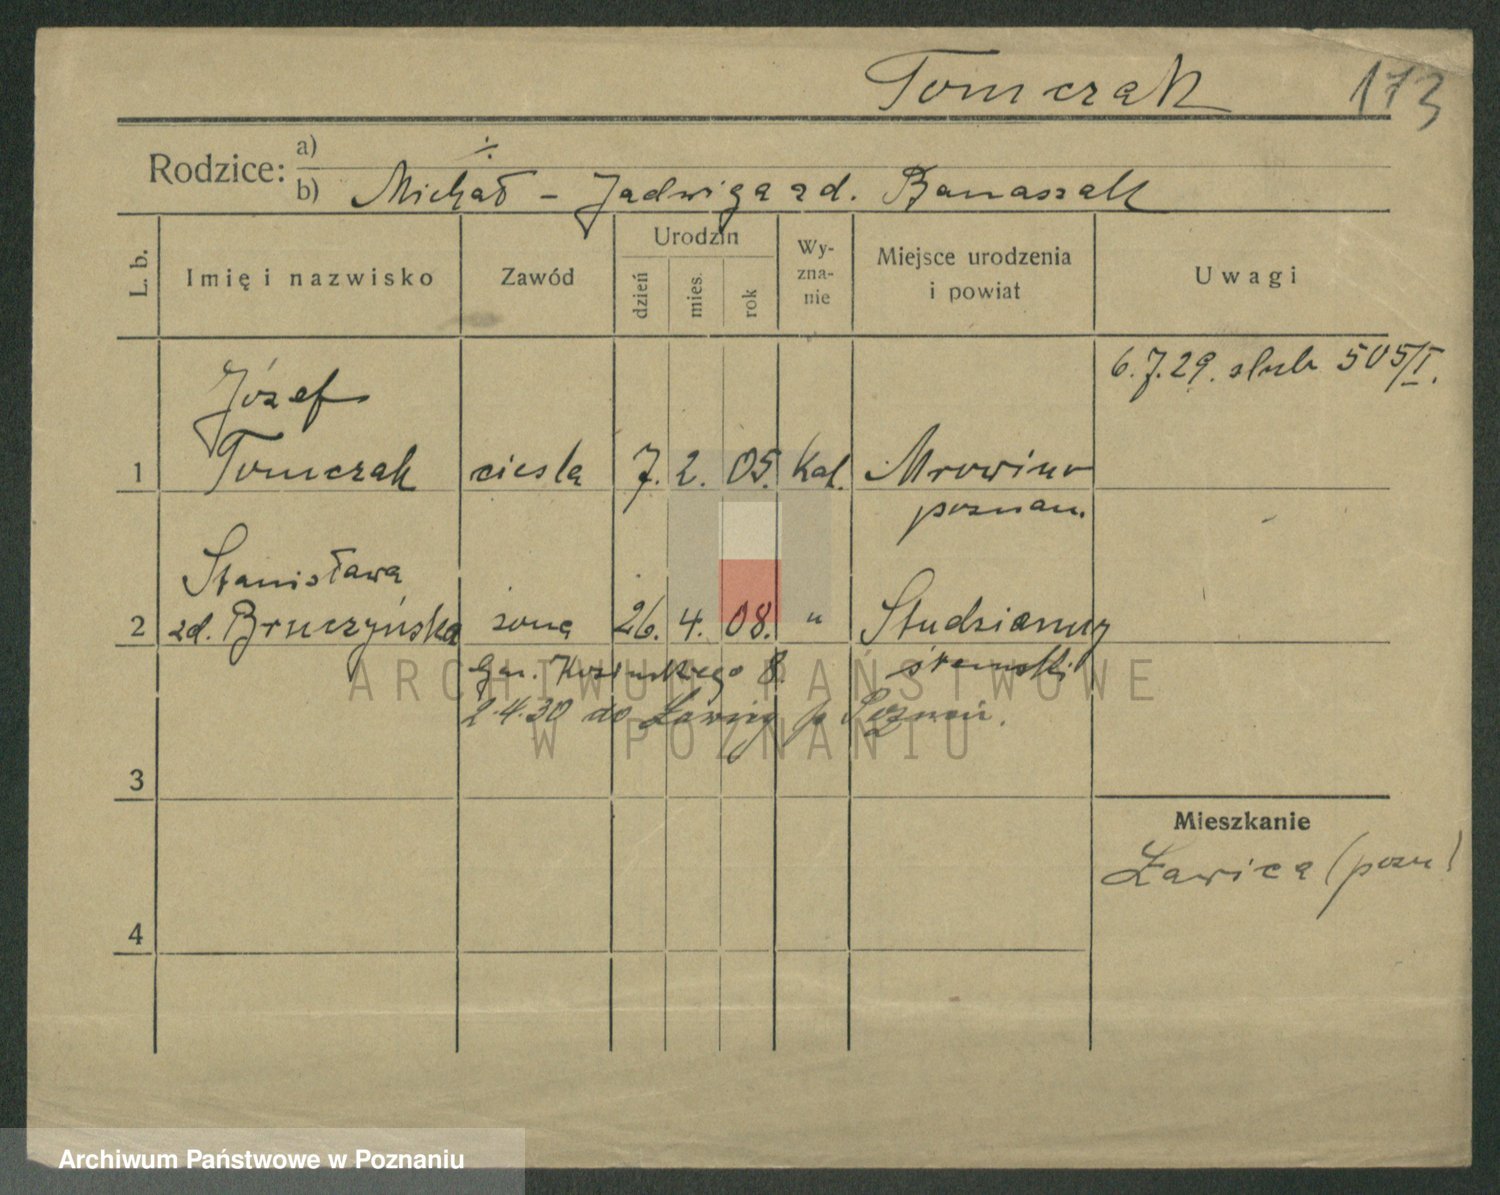 Tomczak 173
Rodzice: a) ÷
b) Michał – Jadwiga zd. Banaszak
L. b. Imię i nazwisko Zawód Urodzin dzień mies. rok Wyznanie Miejsce urodzenia i powiat Uwagi
6.7.29. slub 505/I.
Józef
1 Tomczak ciesla 7. 2. 05. Kat. Mrowino
poznan.
Stanisława
2 zd. Bruczyńska żona 26. 4. 08. " Studzianny
8.
2.4.30 do Ławicy p Poznań.
3
Mieszkanie
Ławica (pozn)
4
ARCHIWUM PAŃSTWOWE
W POZNANIU
Archiwum Państwowe w Poznaniu